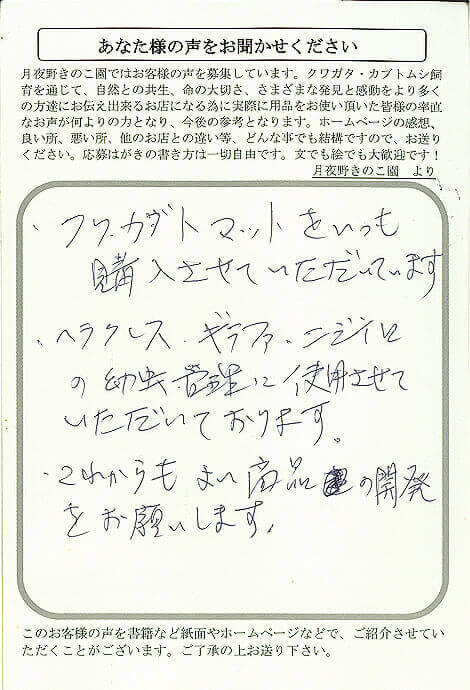 あなた様の声をお聞かせください
月夜野きのこ園ではお客様の声を募集しています。クワガタ・カブトムシ飼
育を通じて、自然との共生、命の大切さ、さまざまな発見と感動をより多く
の方達にお伝え出来るお店になる為に実際に用品をお使い頂いた皆様の率直
なお声が何よりの力となり、今後の参考となります。ホームページの感想、
良い所、悪い所、他のお店との違い等、どんな事でも結構ですので、お送り
ください。応募はがきの書き方は一切自由です。文でも絵でも大歓迎です！
月夜野きのこ園　より
・フワ.カブトマットをいつも
購入させていただいています
・ヘラクレス．ギラファ．ニジイロ
の幼虫管理に使用させて
いただいております。
・これからもよい商品の開発
をお願いします。
このお客様の声を書籍など紙面やホームページなどで、ご紹介させてい
ただくことがございます。ご了承の上お送り下さい。